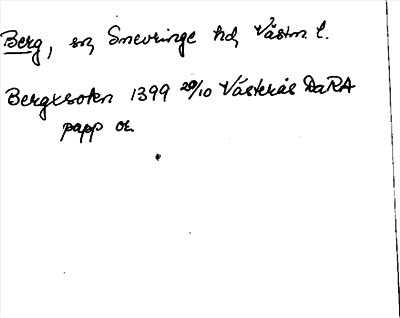 Berg, sn, Snevringe hd, Västm l.
Bergxsokn 1399 20/10 Västerås DaRA
papp or.